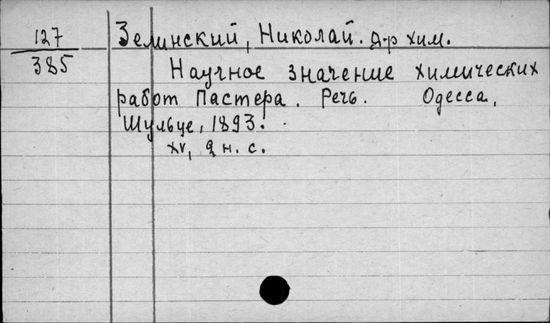 127
385
Зелинский, Николай. д-р хим.
Научное значение химических
работ Пастера. Речь. Одесса,
Шульце, 1893.
xv, 2 н. с.